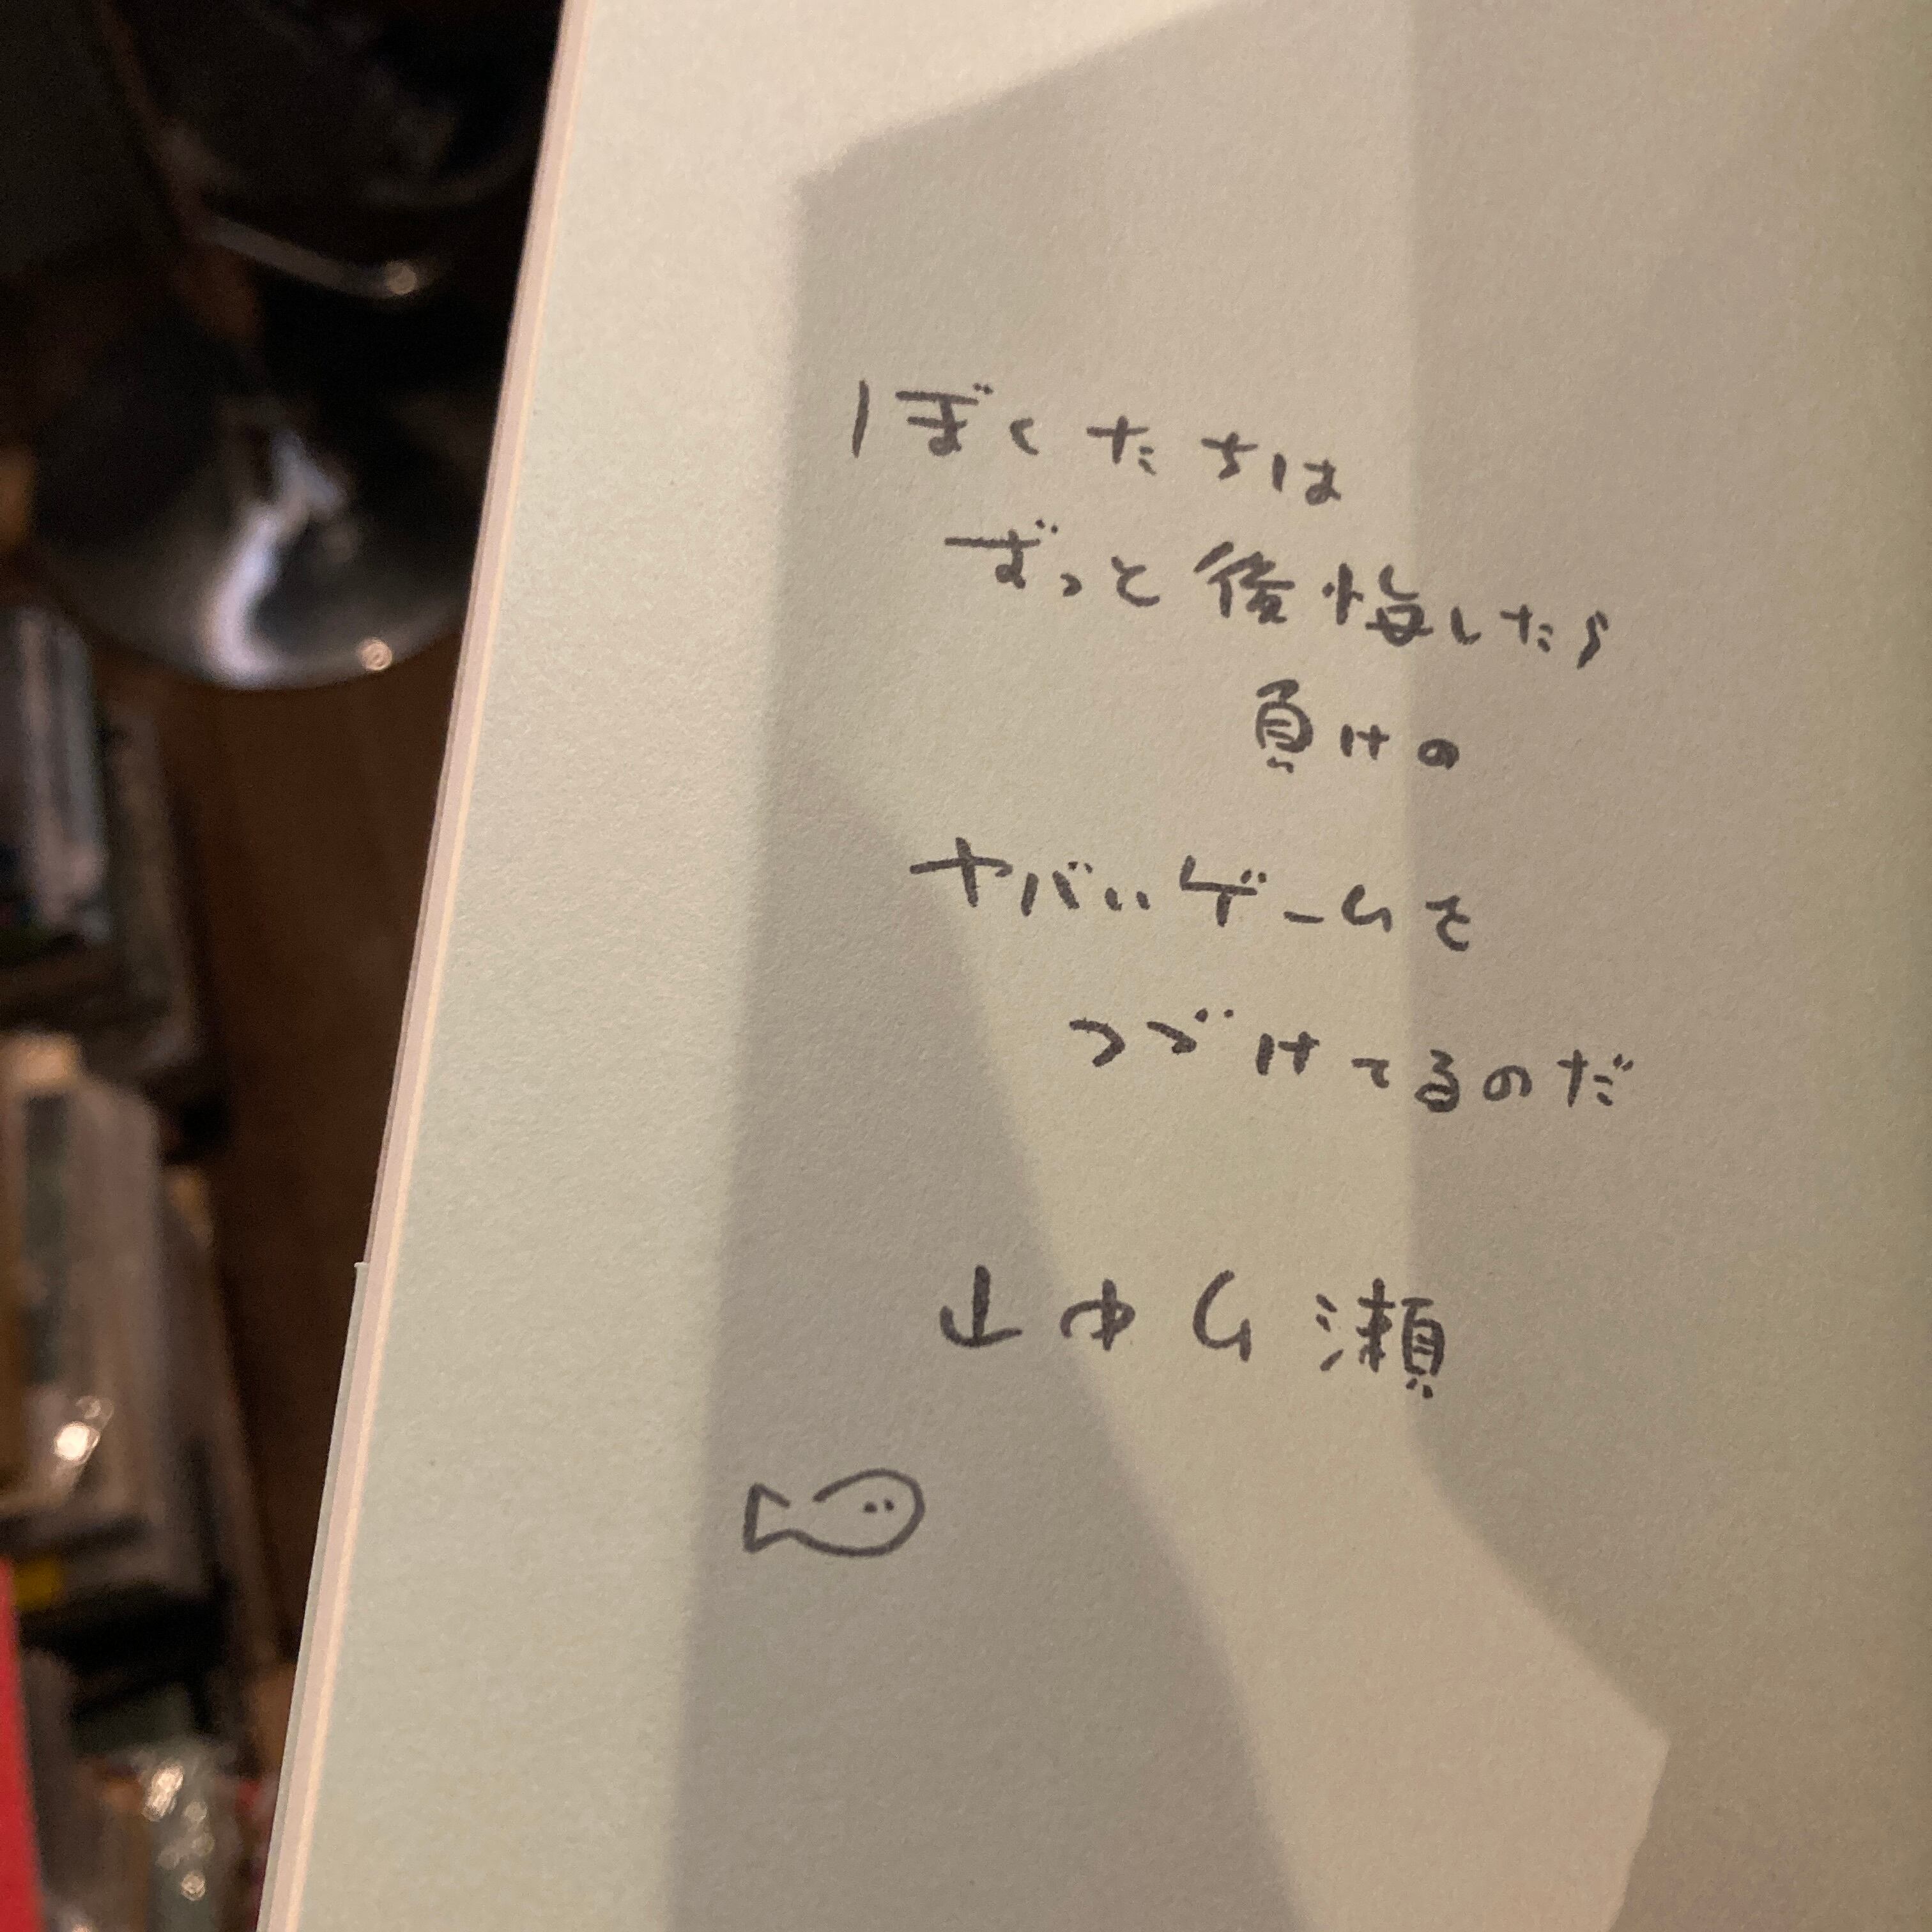 ぼくたちは
ずっと後悔したら
負けの
ヤバいゲームを
つづけてるのだ
山中千瀬